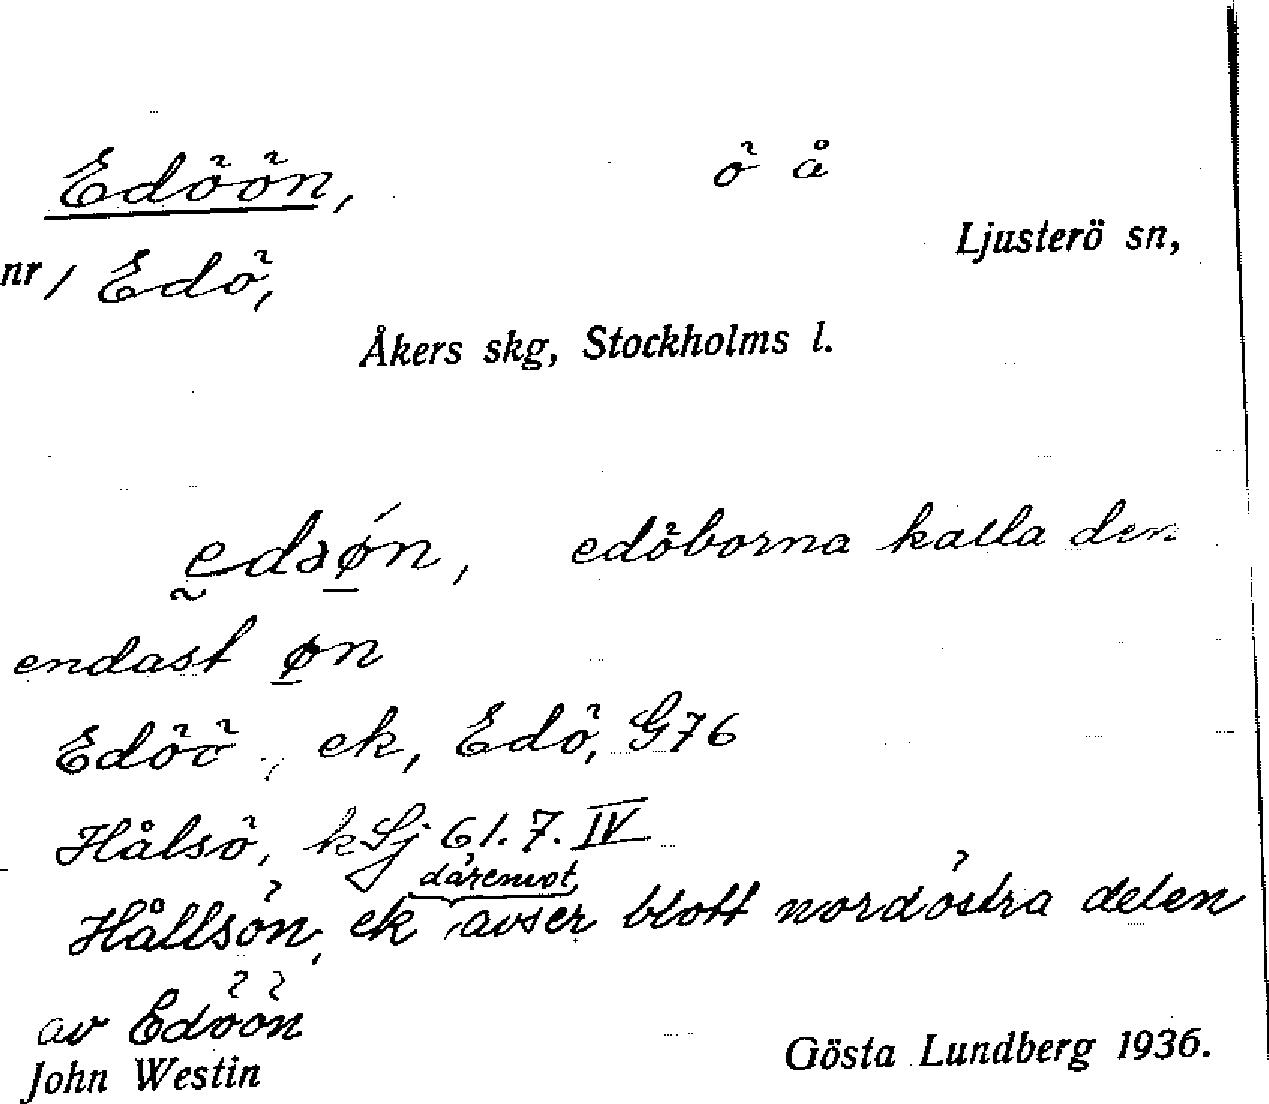 Edöön, ö å
Ljusterö sn,
nr / Edö,
Åkers skg, Stockholms l.
edsøn, edöborna kalla den
endast øn
Edöö, ek, Edö, G76
Hålsö, kSj 61.7.IV
däremot
Hållsön, ek avser blott nordöstra delen
av Edöön
John Westin Gösta Lundberg 1936.